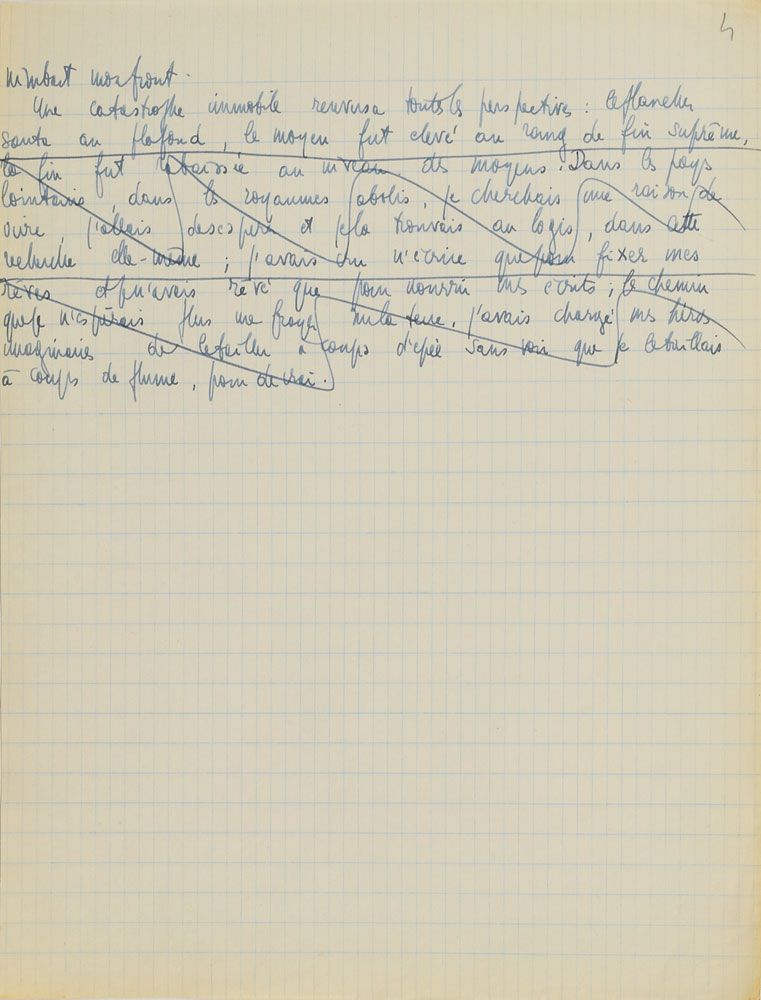 4
nimbait mon front.
Une catastrophe immobile renversa toutes les perspectives : le plancher
sauta au plafond, le moyen fut élevé au rang de fin suprême,
la fin fut abaissée au niveau des moyens. Dans les pays
lointains, dans les royaumes abolis, je cherchais une raison de
vivre, j'allais désespérer et je la trouvais au logis, dans cette
recherche elle-même ; j'avais cru n'écrire que pour fixer mes
rêves et je n'avais rêvé que pour nourrir mes écrits ; le chemin
que je n'espérais plus me frayer sur la terre, j'avais chargé mes héros
imaginaires de le tailler à coups d'épée sans voir que je le taillais
à coups de plume, pour de vrai.